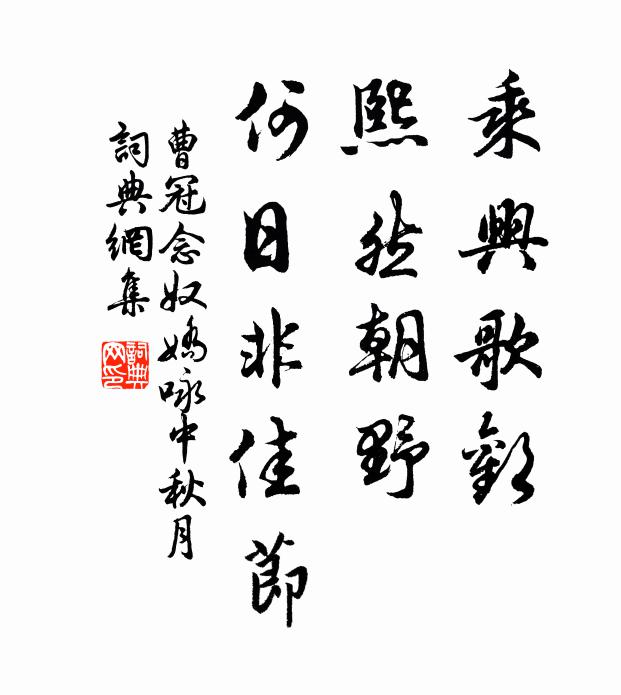 乘興歌歡
熙然朝野
何日非佳節
曹冠念奴嬌咏中秋月
詞典網集
詞典網印